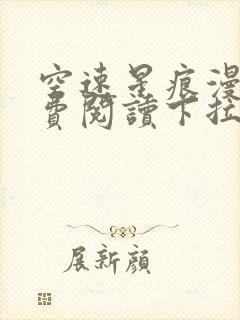 空速星痕漫
費閱讀下拉
展新顔